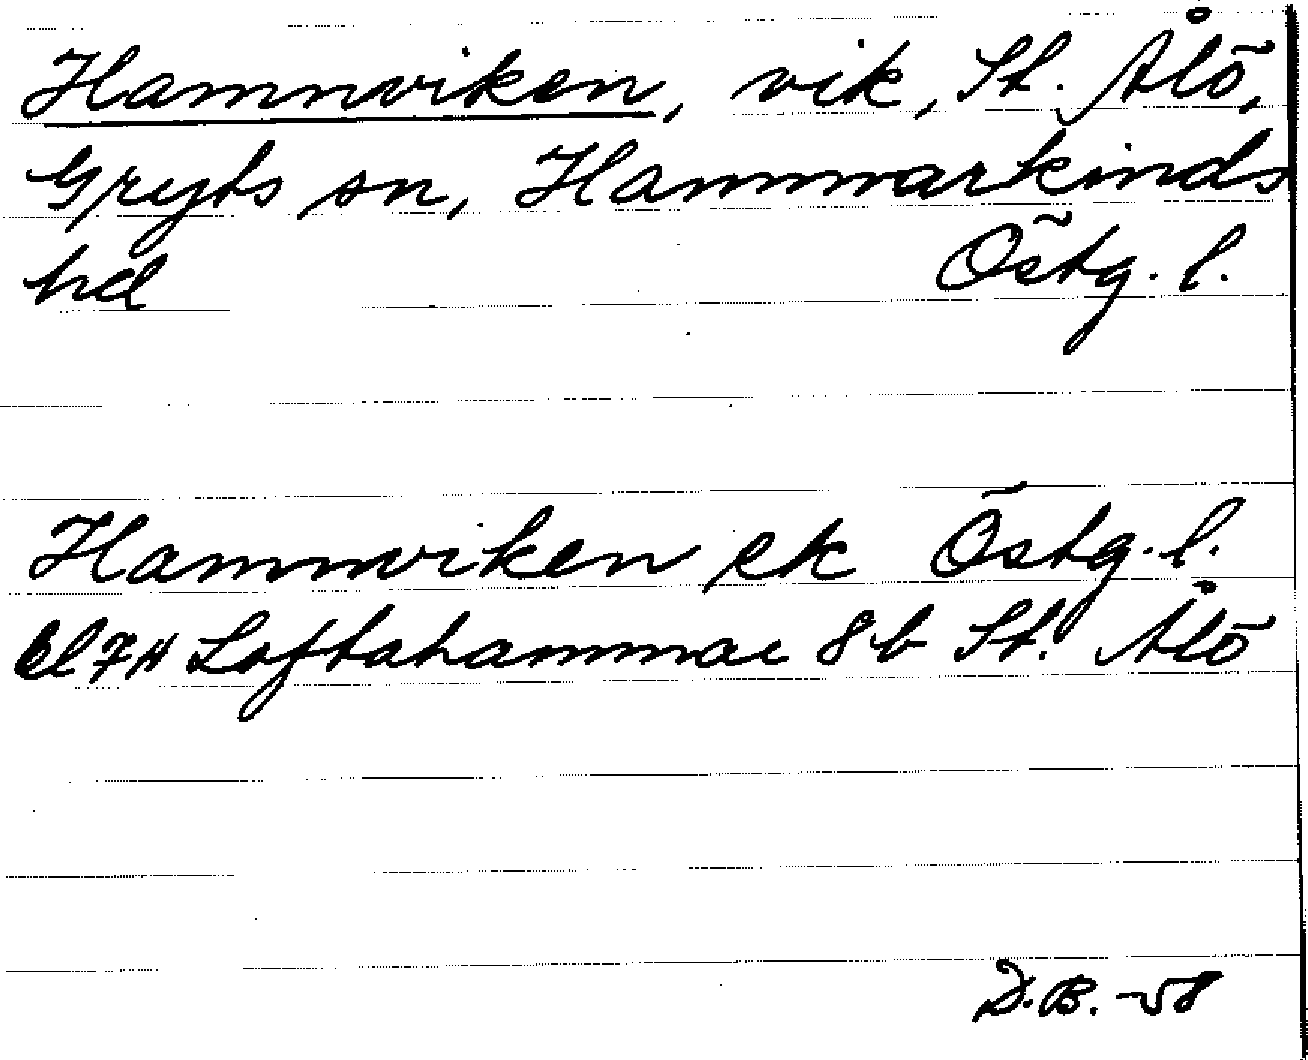 Hamnviken, vik, St. Ålö,
Gryts sn, Hammarkinds
hd Östg. l.
Hamnviken ek Östg. l.
Bl 7H Loftahammar 8b St. Ålö
D.B. -58